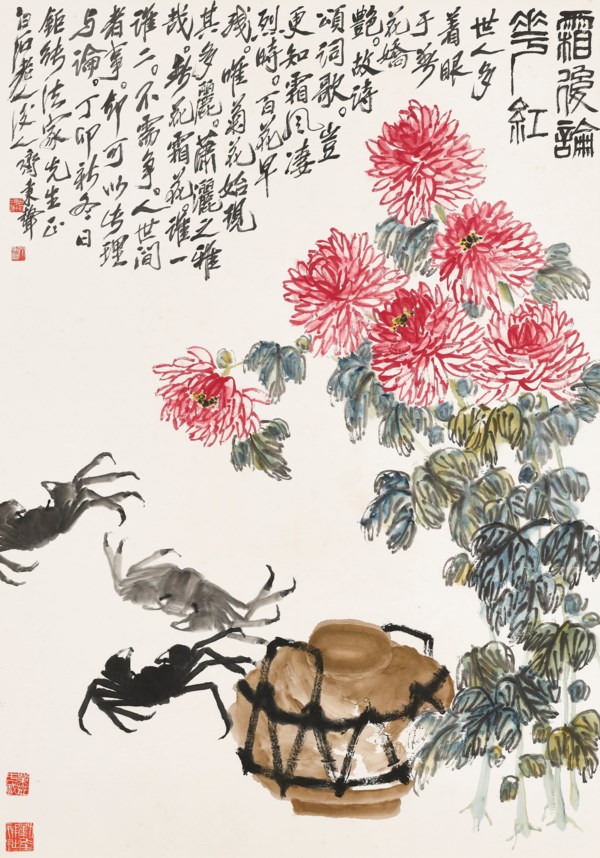 霜後論
華 紅
世人多
着眼
于芳
花嬌
艷。故詩
頌詞歌。豈
更知霜風淒
烈時。百花早
残。唯菊花始現
其多麗。蕭灑之雅
哉。芳花霜花誰一
誰二。不需争。人世間
者事。卻可以 理
与論。丁卯 冬日
法家先生正
白石老人後人齊秉